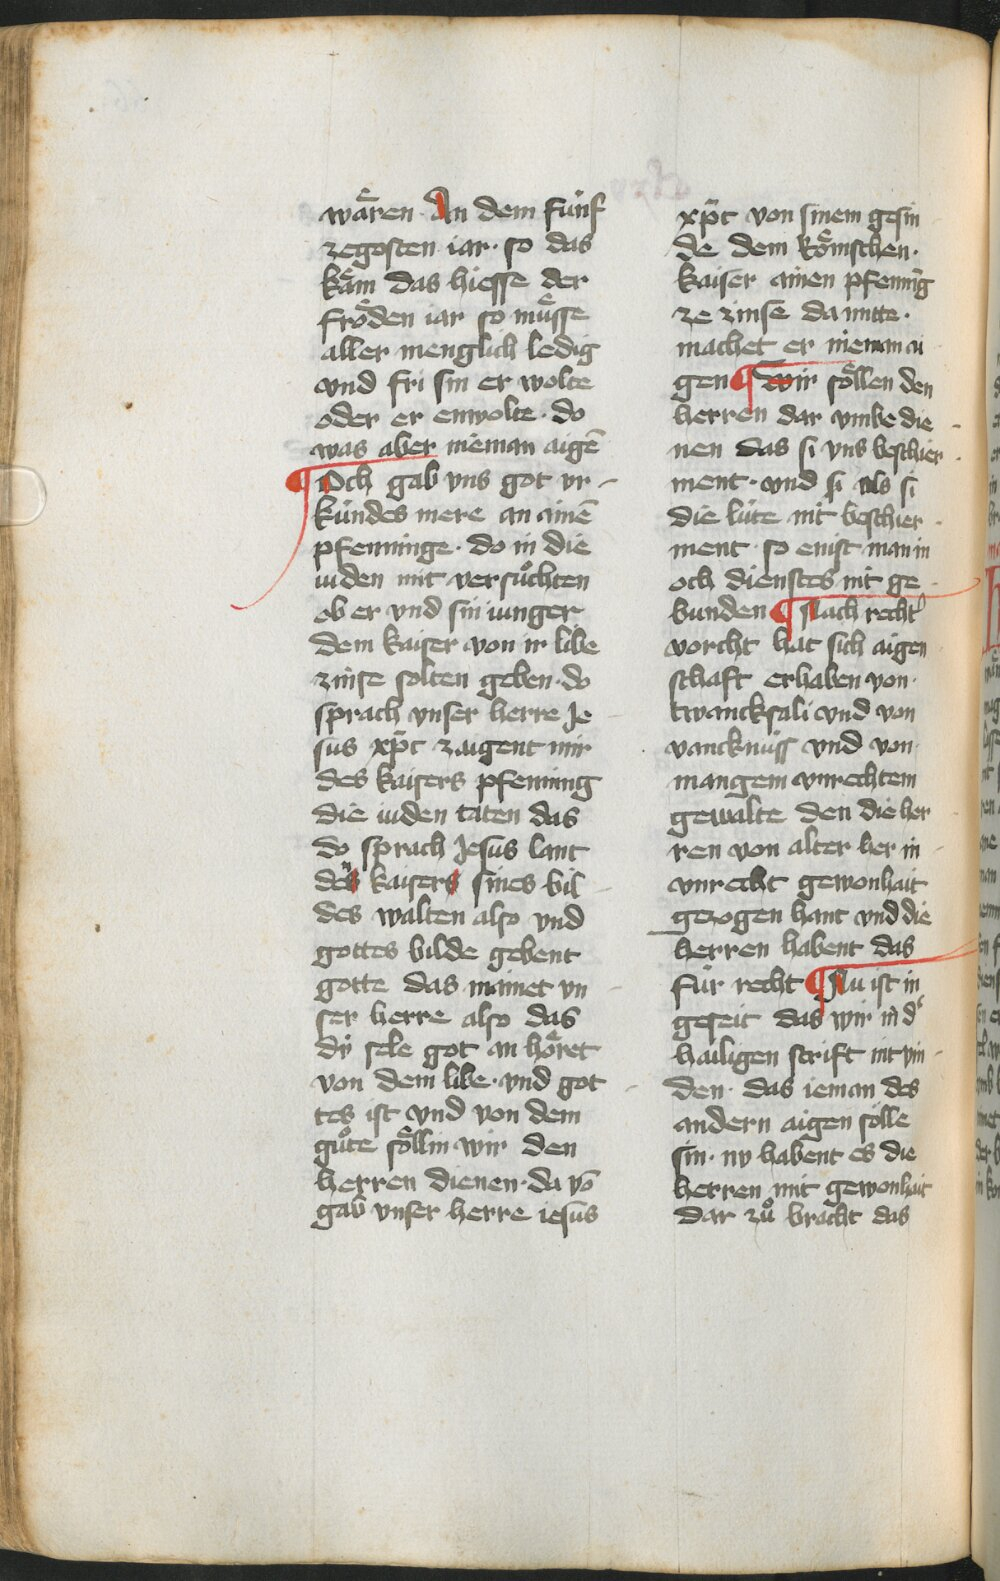 wåren. An dem fúnf
zegosten iar. so das
kåm das hiesse der
fröden iar so müsse
aller menglich ledig
vnd fri sin er wolte
oder er enwolte. do
was aber nieman aigē
¶ Och gab vns got vr-
kúndes mere an ainē
pfenninge. do in die
iuden mit versuͦchten
ob er vnd sin iunger
dem kaiser von ir libe
zinse solten geben. do
sprach vnser herre Je
sus xp̄c zaigent mir
des kaisers pfenning
die iuden taten das
do sprach Jesus lant
den kaisers sines bil
des walten also vnd
gottes bilde gebent
gotte das mainet vn
ser herre also das
dÿ sele got an höret
von dem libe. vnd got
tes ist vnd von dem
guͦte söllin wir den
herren dienen. da vō
gab vnser herre iesus
xp̄c von sinem gesin
de dem Römschen.
kaiser ainen pfenning
ze zinse da mitte.
machet er nieman ai
gen ¶ Wir söllen den
herren dar vmbe die
nen das si vns beschier
ment. vnd si als si
die lúte nit beschier
ment so enist man in
och dienstes nit ge
bunden ¶ Nach recht
vorcht hat sich aigen
schaft erhaben von.
twancksali vnd von
vancknúss vnd von
mangem vnrechtem
gewalte den die her
ren von alter her in
vnrecht gewonhait
gezogen hant vnd die
herren habent das
fúr recht ¶ Nu ist in
geseit das wir in dˀ
hailigen scrift nit vin
den. das ieman des
andern aigen sölle
sin. nv habent es die
herren mit gewonhait
dar zuͦ bracht das